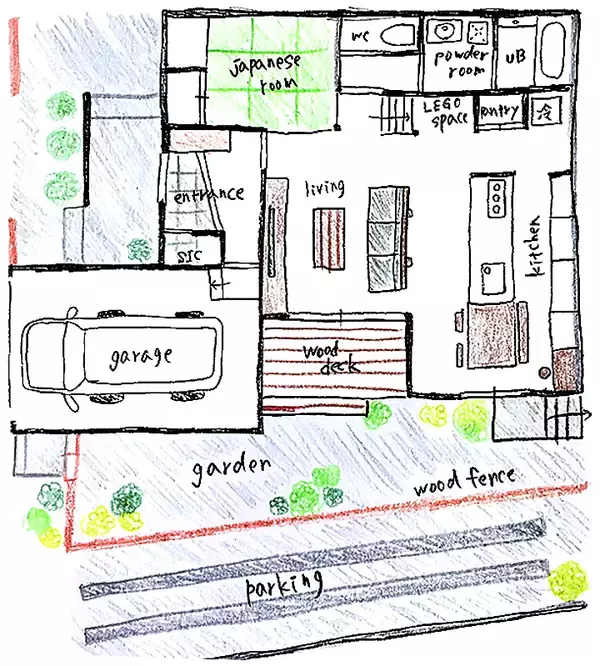 WC
powder
room
UB
Japanese
room
LEGO
space
pantry
冷
living
entrance
SIC
kitchen
garage
wood
deck
garden
wood fence
parking